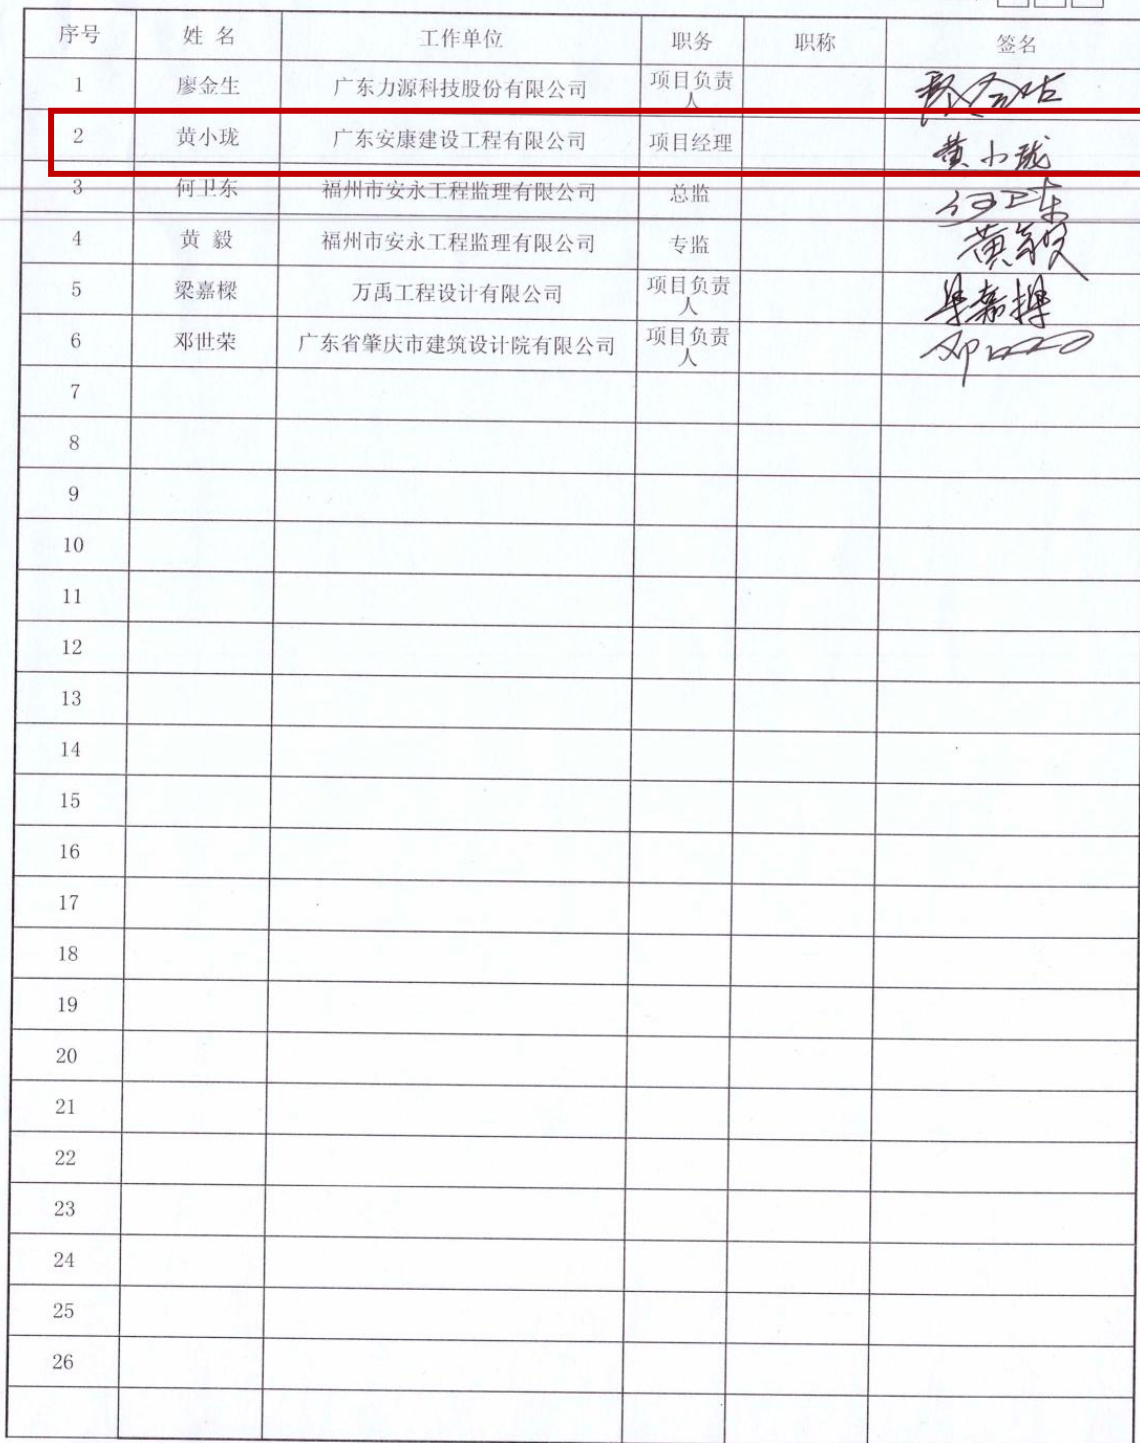 序号 姓 名 工作单位 职务 职称 签名
1 廖金生 广东力源科技股份有限公司 项目负责人
2 黄小珑 广东安康建设工程有限公司 项目经理 黄小珑
3 何卫东 福州市安永工程监理有限公司 总监 何卫东
4 黄 毅 福州市安永工程监理有限公司 专监 黄毅
5 梁嘉樑 万禹工程设计有限公司 项目负责人
6 邓世荣 广东省肇庆市建筑设计院有限公司 项目负责人
7
8
9
10
11
12
13
14
15
16
17
18
19
20
21
22
23
24
25
26